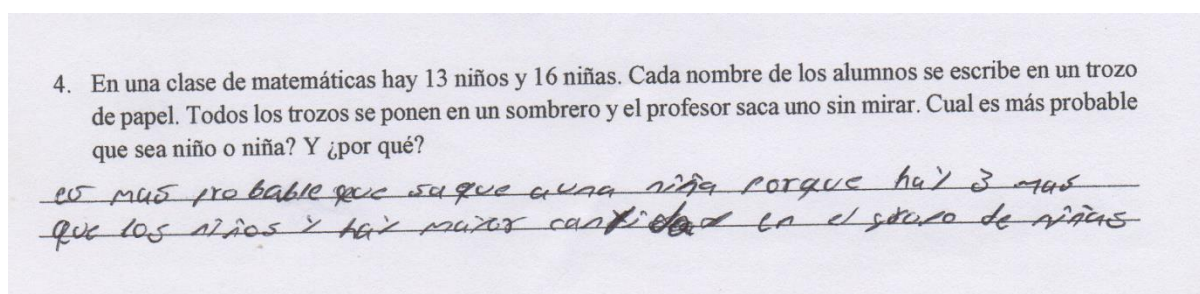 4. En una clase de matemáticas hay 13 niños y 16 niñas. Cada nombre de los alumnos se escribe en un trozo
de papel. Todos los trozos se ponen en un sombrero y el profesor saca uno sin mirar. Cual es más probable
que sea niño o niña? Y ¿por qué?
es mas probable que saque a una niña porque hay 3 mas
que los niños y hay mayor cantidad en el grupo de niñas